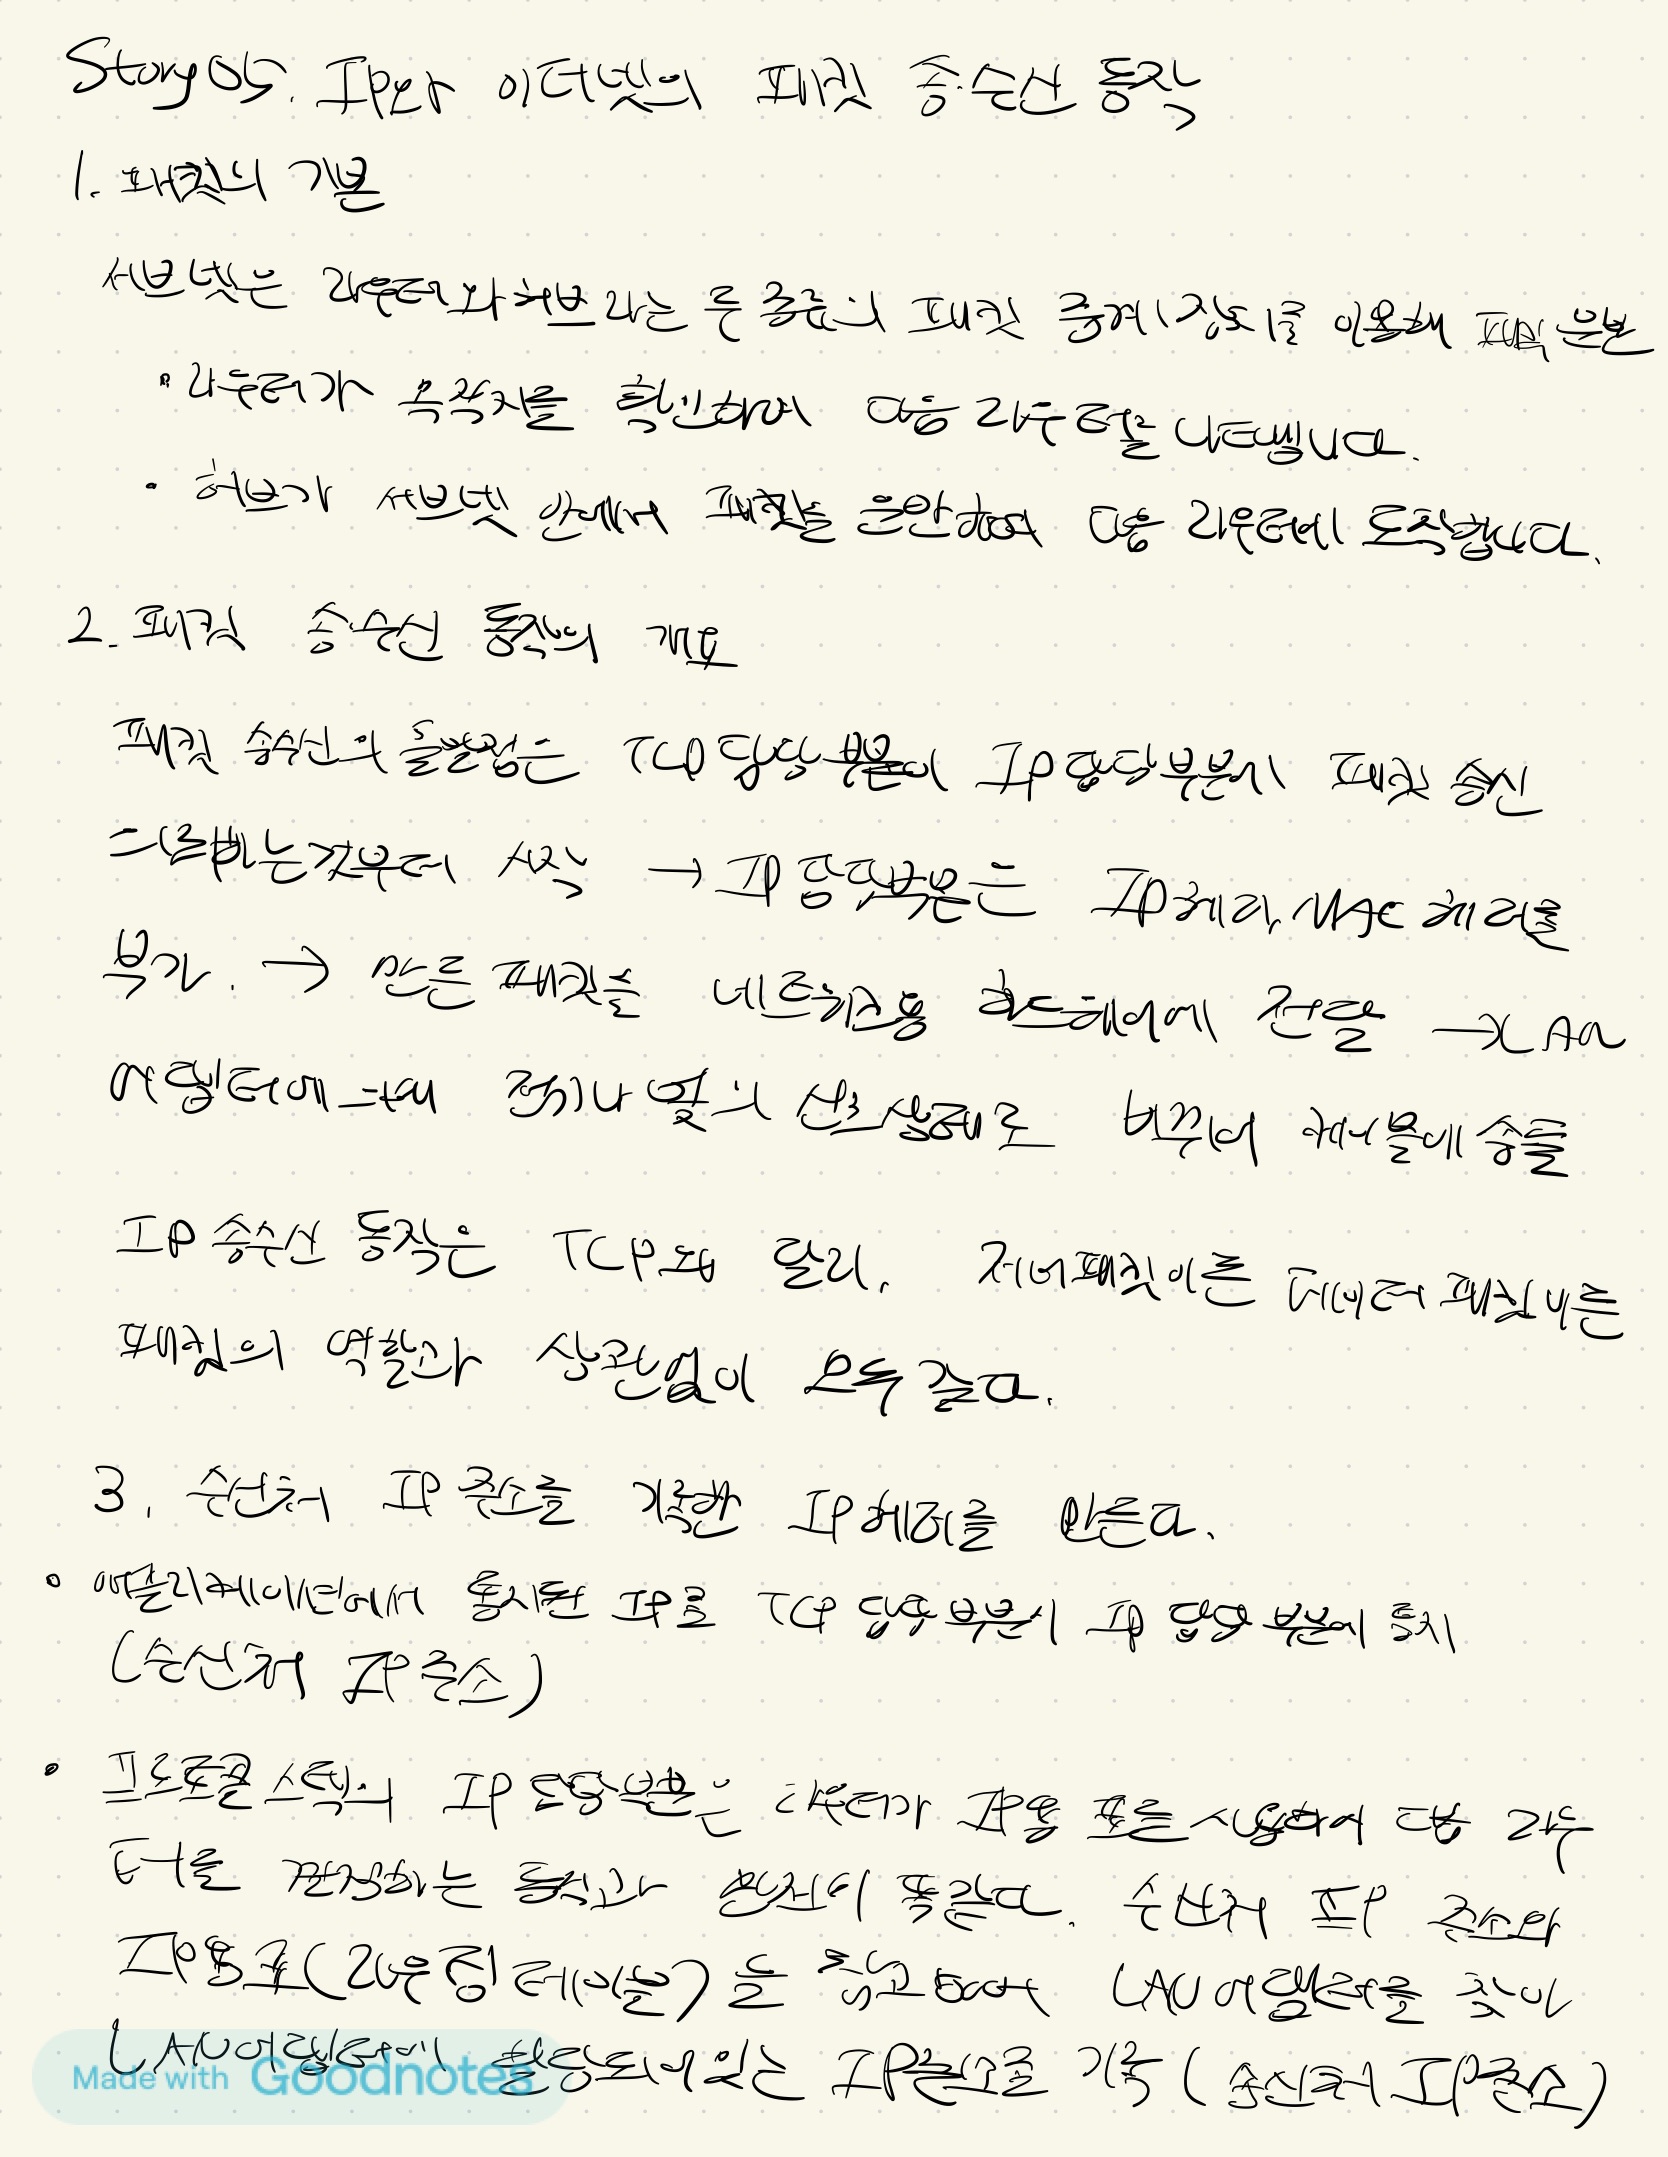 Story 05. IP와 이더넷의 패킷 송·수신 동작
1. 패킷의 기본
서브넷은 라우터와 허브라는 두 종류의 패킷 중계장치를 이용해 패킷 운반
• 라우터가 목적지를 확인하여 다음 라우터를 나타냅니다.
• 허브가 서브넷 안에서 패킷을 운반하여 다음 라우터에 도착합니다.
2. 패킷 송·수신 동작의 개요
패킷 송수신의 출발점은 TCP 담당 부분이 IP 담당부분에 패킷 송신
의뢰하는것부터 시작 → IP 담당부분은 IP헤더, MAC 헤더를
부가. → 만든 패킷을 네트워크용 하드웨어에 전달 → LAN
어댑터에 의해 전기나 빛의 신호 상태로 바꾸어 케이블에 송출
IP 송수신 동작은 TCP와 달리, 제어패킷이든 데이터 패킷이든
패킷의 역할과 상관없이 모두 같다.
3. 수신처 IP 주소를 기록한 IP헤더를 만든다.
• 애플리케이션에서 통지된 IP를 TCP 담당 부분이 IP 담당 부분에 통지
(수신처 IP 주소)
• 프로토콜 스택의 IP 담당부분은 라우터가 IP용 표를 사용하여 다음 라우
터를 판정하는 동작과 완전히 똑같다. 수신처 IP 주소와
IP용 표(라우팅 테이블)을 참고하여 LAN 어댑터를 찾아
LAN어댑터에 할당되어있는 IP주소를 기록 (송신처 IP주소)
Made with Goodnotes